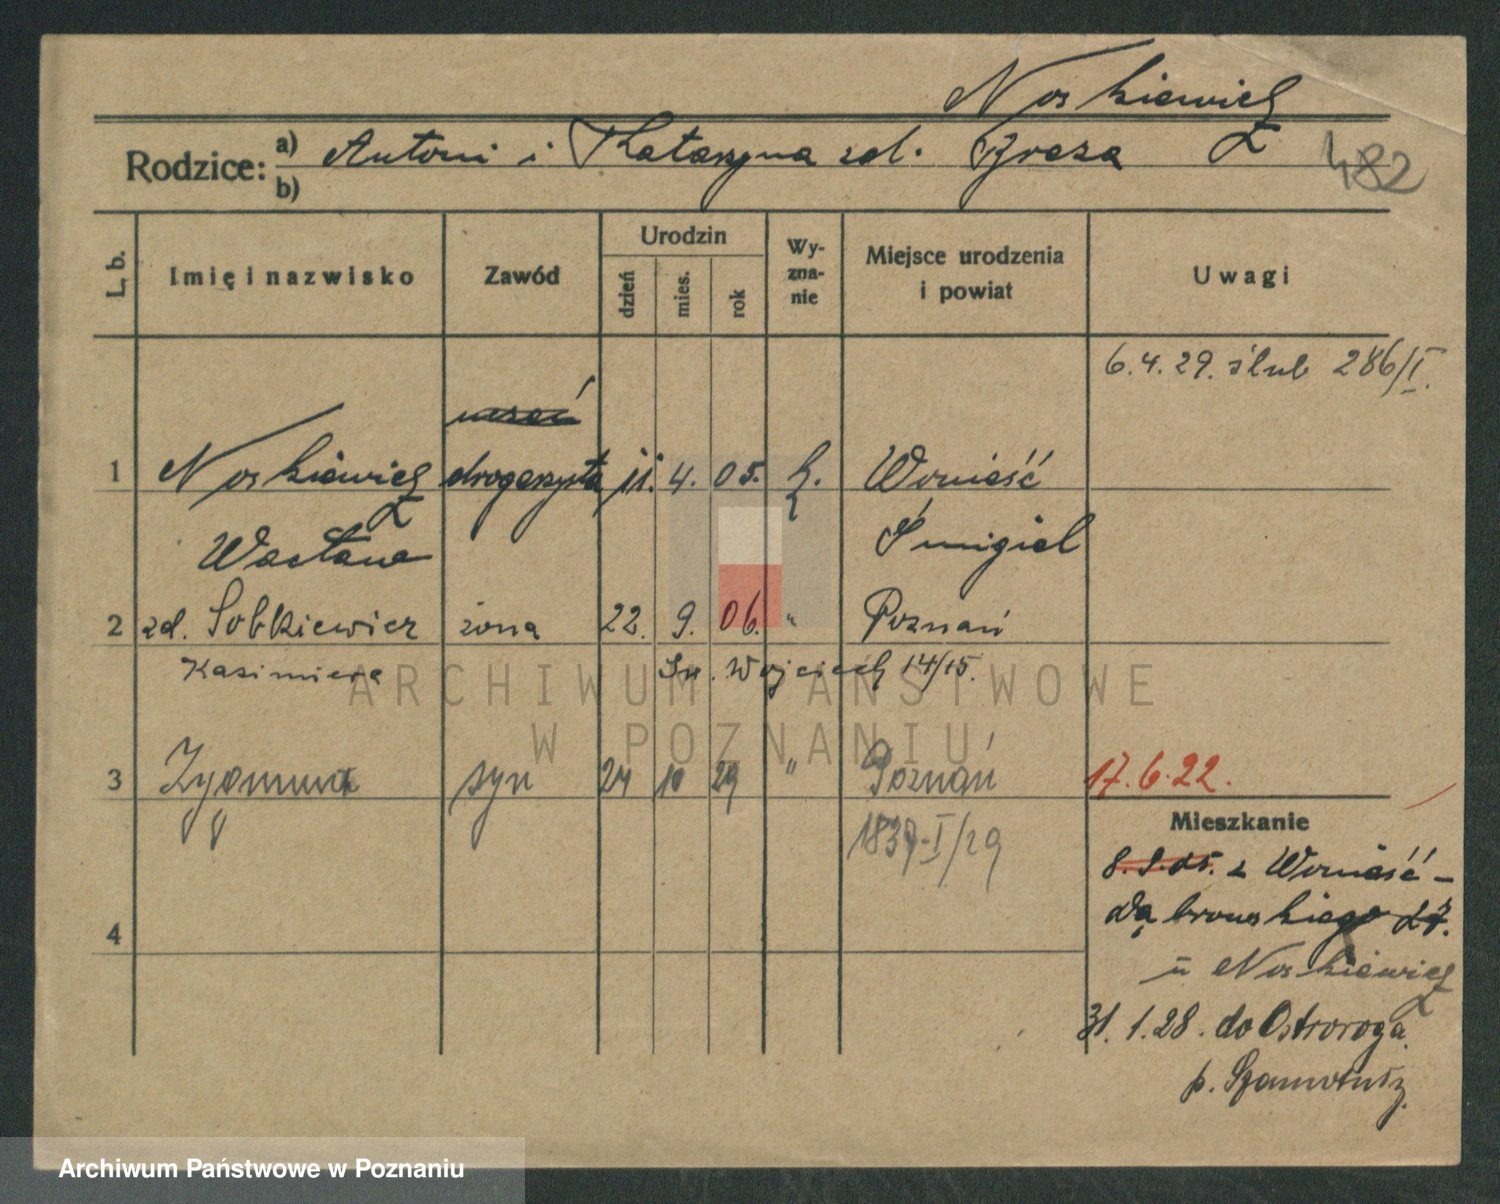 Noskiewicz
Rodzice: a) Antoni i Katarzyna zd. Broza
b)
482
L. b.
Imię i nazwisko
Zawód
Urodzin
dzień
mies.
rok
Wy-
zna-
nie
Miejsce urodzenia
i powiat
Uwagi
6.4.29. ślub 286/I.
uczeń
1 Noskiewicz drogerzysta 11. 4. 05. k. Wonieść
Wacław Śmigiel
2 zd. Sobkiewicz żona 22. 9. 06. " Poznań
Kazimiera Św. Wojciech 14/15.
3 Zygmunt syn 24 10 29 " Poznań
17.6.22.
1837-I/29
Mieszkanie
8.9.25. z Wonieść -
Dąbrowskiego
4
u Noskiewicz
31.1.28. do Ostroroga
p. Szamotuły.
ARCHIWUM PAŃSTWOWE
W POZNANIU
Archiwum Państwowe w Poznaniu